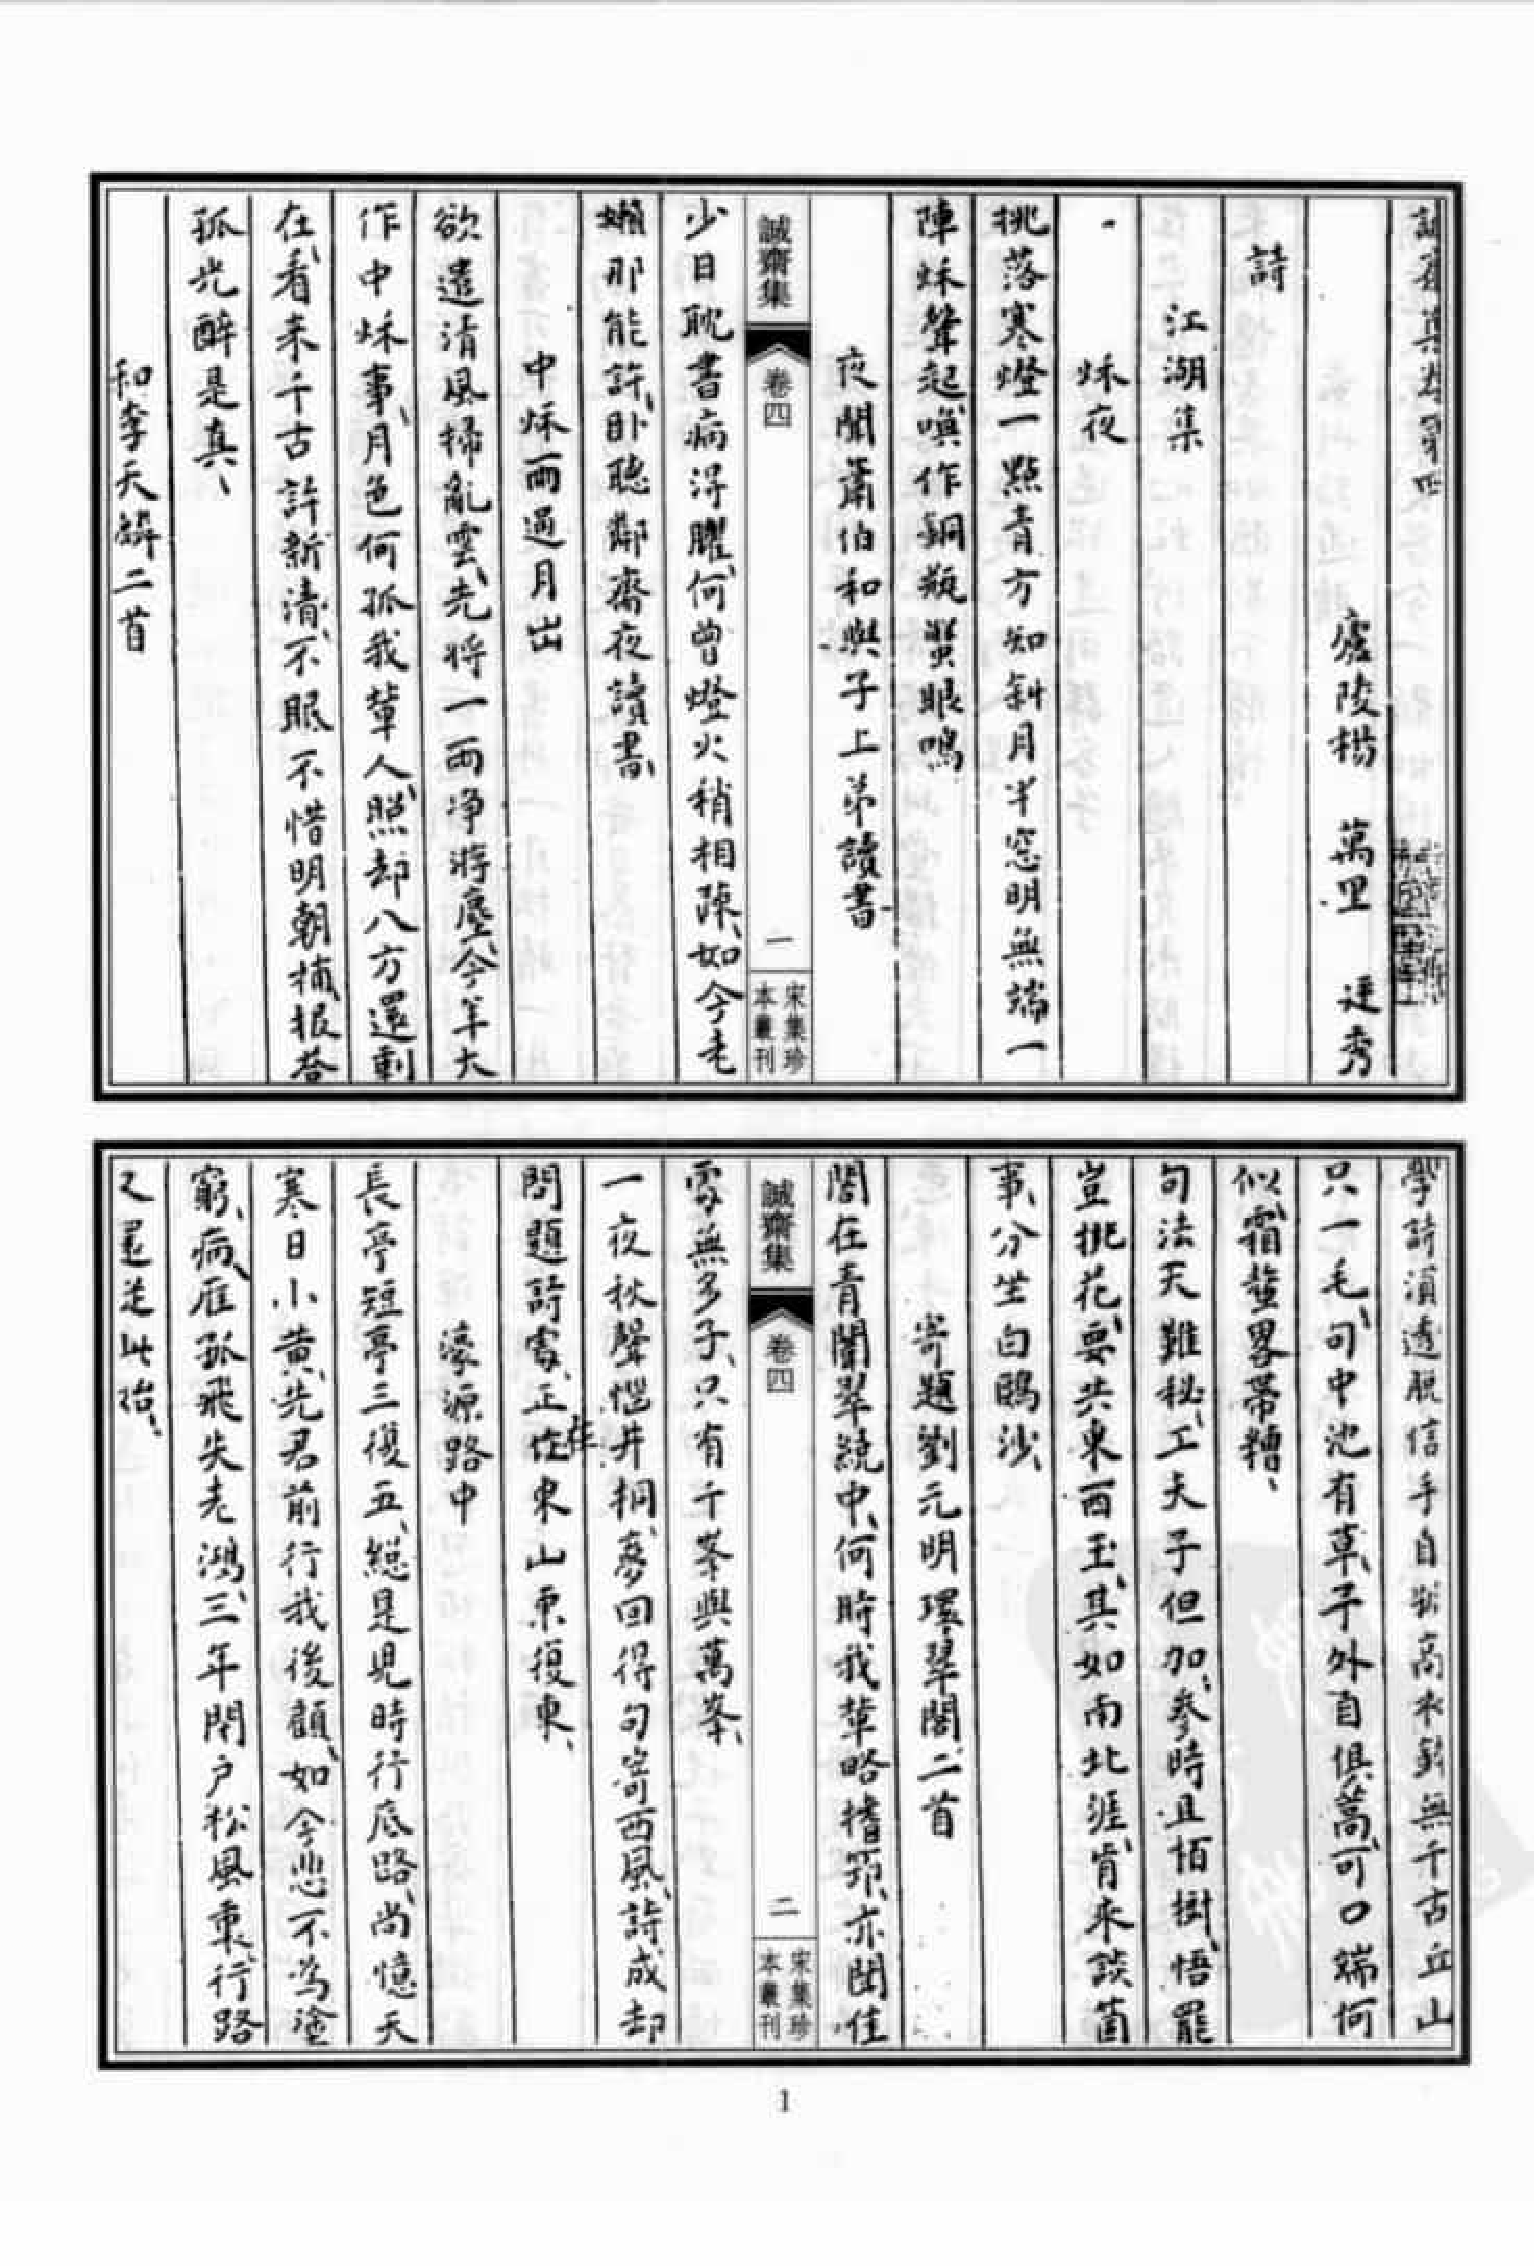 誠齋集卷第四
廬陵楊 萬里 廷秀
詩
江湖集
秌夜
挑落寒燈一點青方知斜月半窓明無端一
陣秌聲起喚作銅瓶蠏眼鳴
夜聞蕭伯和與子上弟讀書
少日耽書病得臞何曾燈火稍相踈如今老
嬾那能許卧聽鄰齋夜讀書
中秌雨過月出
欲遣清風掃亂雲先將一雨净游塵今年大
作中秌事月色何孤我輩人照却八方還剩
在看来千古許新清不眠不惜明朝捕報答
孤光醉是真
和李天麟二首
誠齋集
卷四
一
宋集珍
本叢刊
學詩湏透脱信手自孤高衣鉢無千古丘山
只一毛句中池有草子外自俱蒿可口端何
似霜螯畧帶糟
句法天難秘工夫子但加參時且栢樹悟罷
豈桃花要共東西玉其如南北涯肯来談箇
事分坐白鷗沙
寄題劉元明環翠閣二首
閣在青闌翠繞中何時我輩略揩筇亦聞佳
處無多子只有千峯與萬峯
一夜秋聲惱井桐夢回得句寄西風詩成却
問題詩處正在東山東復東
在
濠源路中
長亭短亭三復五總是児時行底路尚憶天
寒日小黄先君前行我後顧如今悲不為塗
窮病雁孤飛失老鴻三年閉户松風裏行路
又還從此始
誠齋集
卷四
二
宋集珍
本叢刊
1